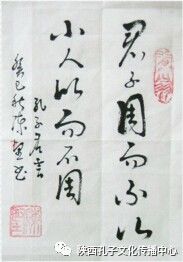 君子周而不比
小人比而不周
孔子居言
癸巳秋陈
陕西孔子文化传播中心